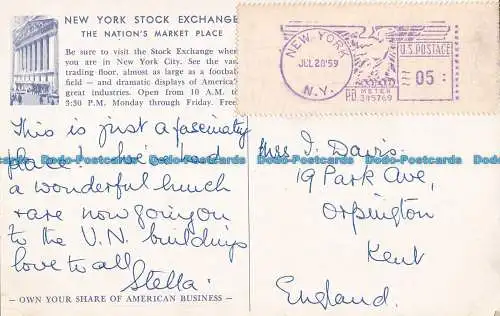 NEW YORK STOCK EXCHANGE
THE NATION'S MARKET PLACE
Be sure to visit the Stock Exchange when
you are in New York City. See the vast
trading floor, almost as large as a football
field — and dramatic displays of America's
great industries. Open from 10 A.M. to
3:30 P.M. Monday through Friday. Free.
NEW YORK
JUL 28 '59
N.Y.
U.S. POSTAGE
05
P.B. METER
345769
This is just a fascinating
place! We've had
a wonderful lunch
& are now going
to the U.N. buildings
love to all
Stella
Miss I. Davis.
19 Park Ave,
Orpington
Kent
England.
— OWN YOUR SHARE OF AMERICAN BUSINESS —
Dodo-Postcards Dodo-Postcards Dodo-Postcards Dodo-Postcards